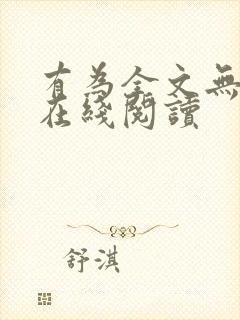 有為全文無
在綫閱讀
舒淇